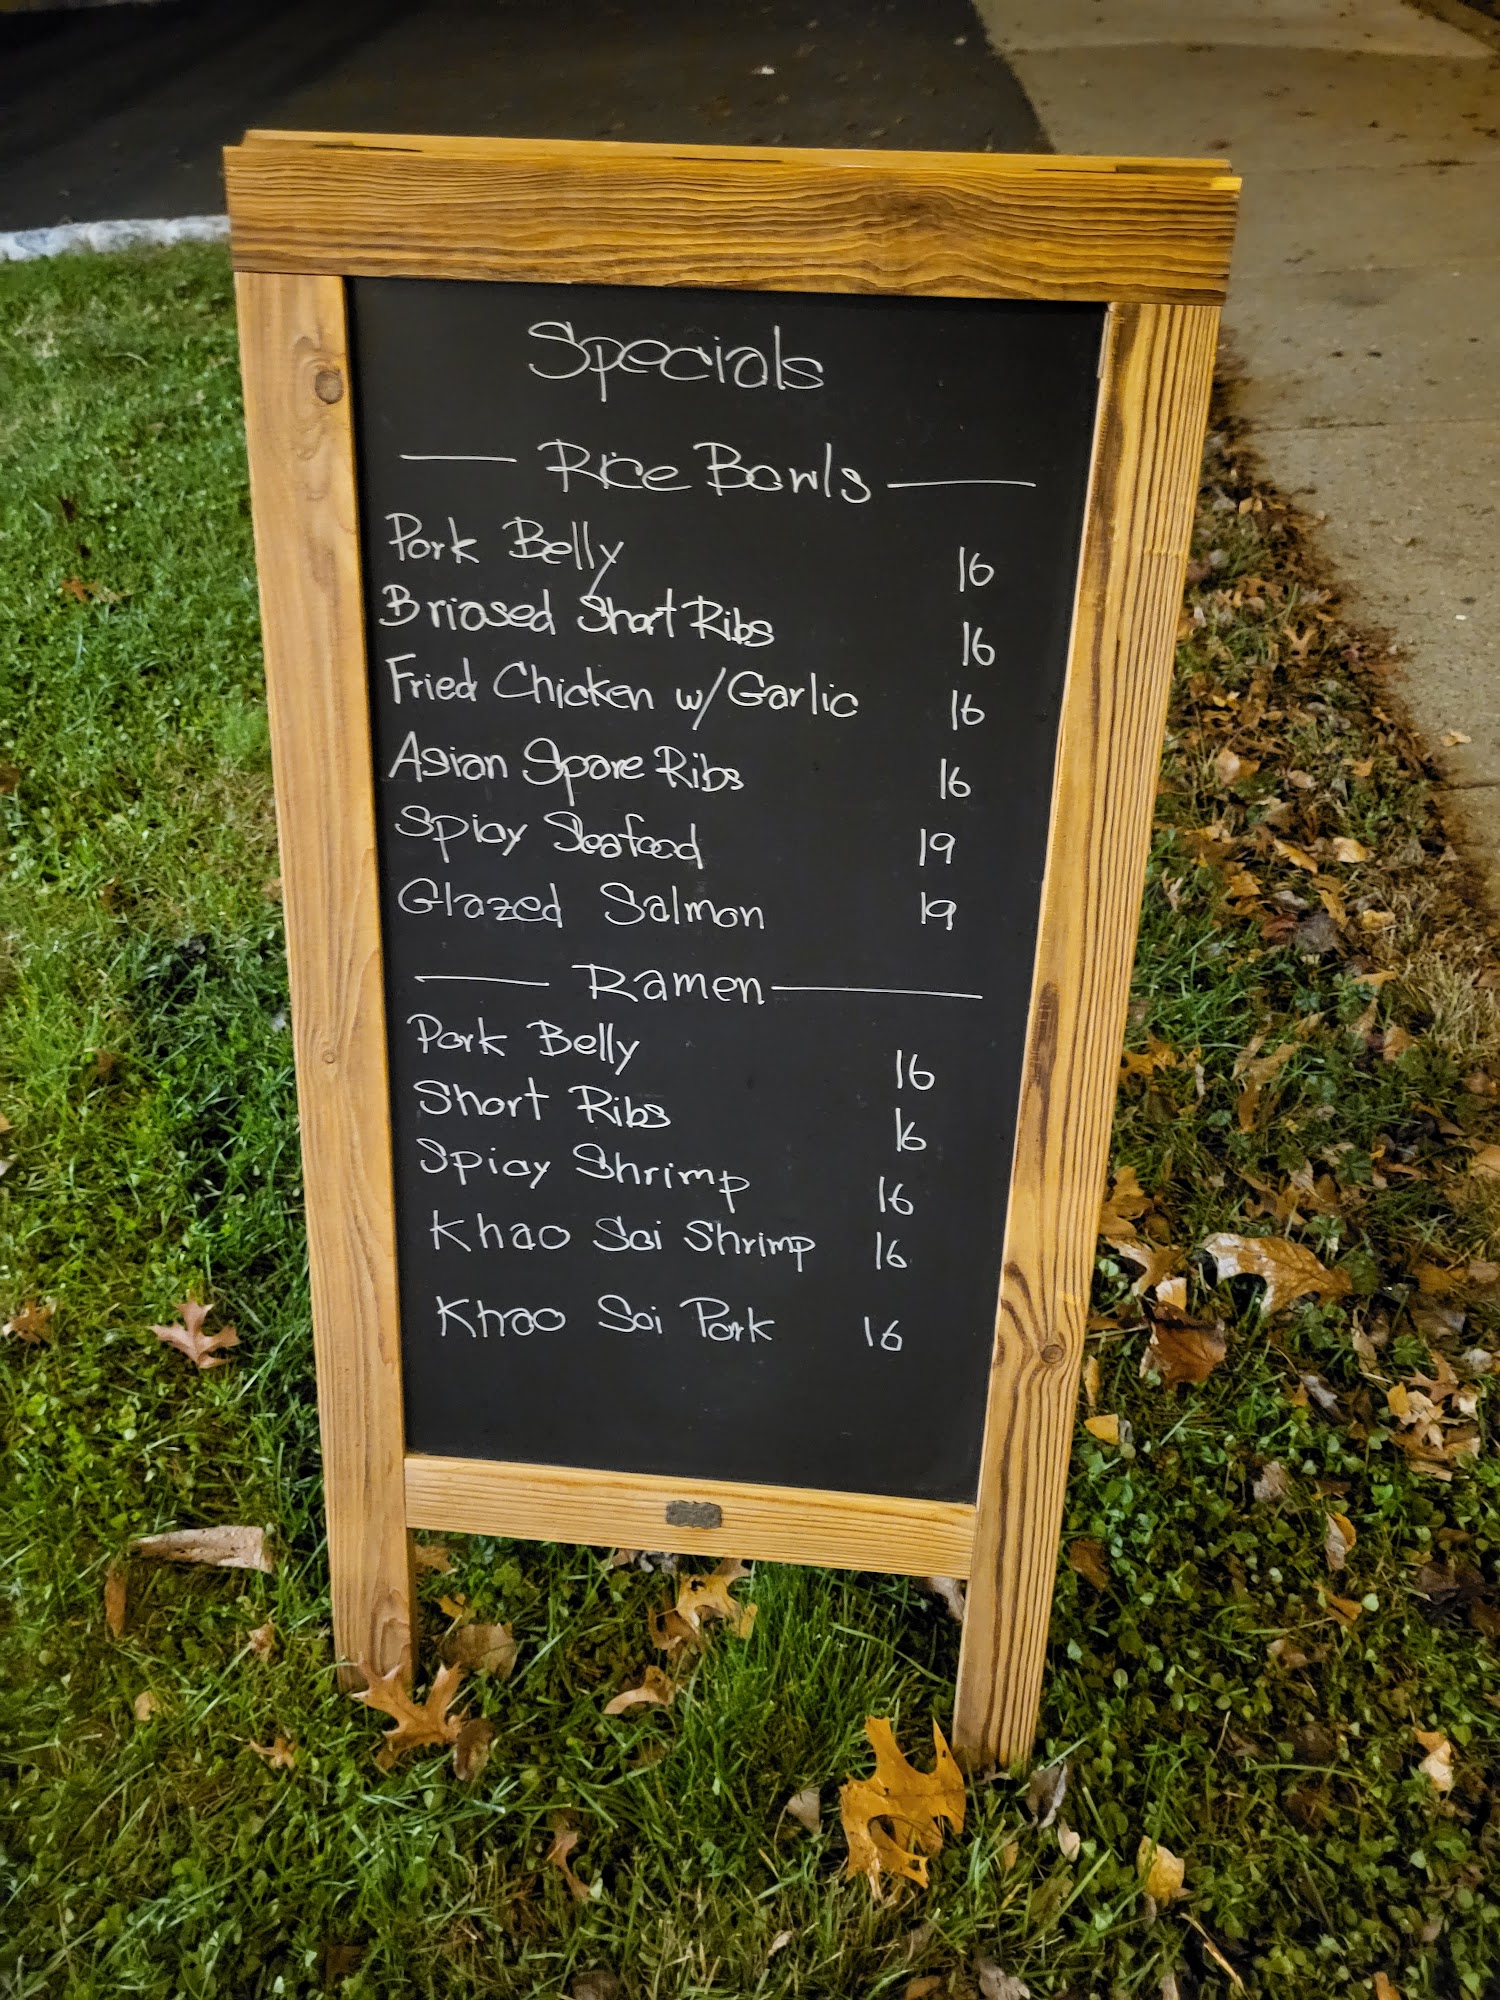 Specials
Rice Bowls
Pork Belly 16
Briased Short Ribs 16
Fried Chicken w/ Garlic 16
Asian Spare Ribs 16
Spicy Seafood 19
Glazed Salmon 19
Ramen
Pork Belly 16
Short Ribs 16
Spicy Shrimp 16
Khao Soi Shrimp 16
Khao Soi Pork 16